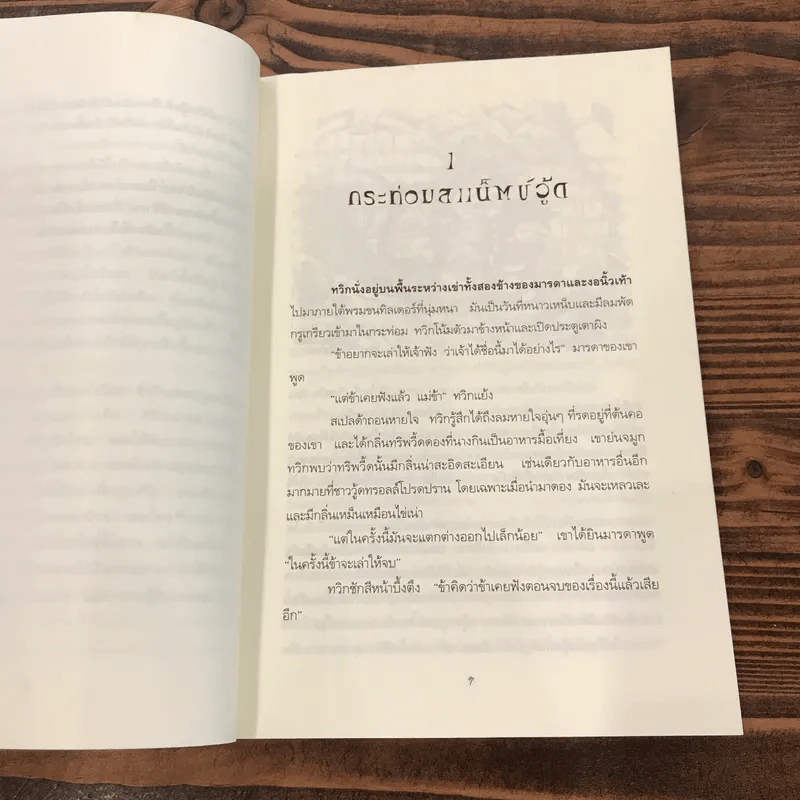 1
กระท่อมสแน็พบ์วู้ด
ทวิกนั่งอยู่บนพื้นระหว่างเข่าทั้งสองข้างของมารดาและงอนิ้วเท้า
ไปมาภายใต้พรมขนทิลเดอร์ที่นุ่มหนา มันเป็นวันที่หนาวเหน็บและมีลมพัด
กรูเกรียวเข้ามาในกระท่อม ทวิกโน้มตัวมาข้างหน้าและเปิดประตูเตาผิง
“ข้าอยากจะเล่าให้เจ้าฟัง ว่าเจ้าได้ชื่อนี้มาได้อย่างไร” มารดาของเขา
พูด
“แต่ข้าเคยฟังแล้ว แม่ข้า” ทวิกแย้ง
สเปลด้าถอนหายใจ ทวิกรู้สึกได้ถึงลมหายใจอุ่นๆ ที่รดอยู่ที่ต้นคอ
ของเขา และได้กลิ่นทริพวี้ดดองที่นางกินเป็นอาหารมื้อเที่ยง เขาย่นจมูก
ทวิกพบว่าทริพวี้ดนั้นมีกลิ่นน่าสะอิดสะเอียน เช่นเดียวกับอาหารอื่นอีก
มากมายที่ชาววู้ดทรอลล์โปรดปราน โดยเฉพาะเมื่อนำมาดอง มันจะเหลวเละ
และมีกลิ่นเหม็นเหมือนไข่เน่า
“แต่ในครั้งนี้มันจะแตกต่างออกไปเล็กน้อย” เขาได้ยินมารดาพูด
“ในครั้งนี้ข้าจะเล่าให้จบ”
ทวิกชักสีหน้าบึ้งตึง “ข้าคิดว่าข้าเคยฟังตอนจบของเรื่องนี้แล้วเสีย
อีก”
๗